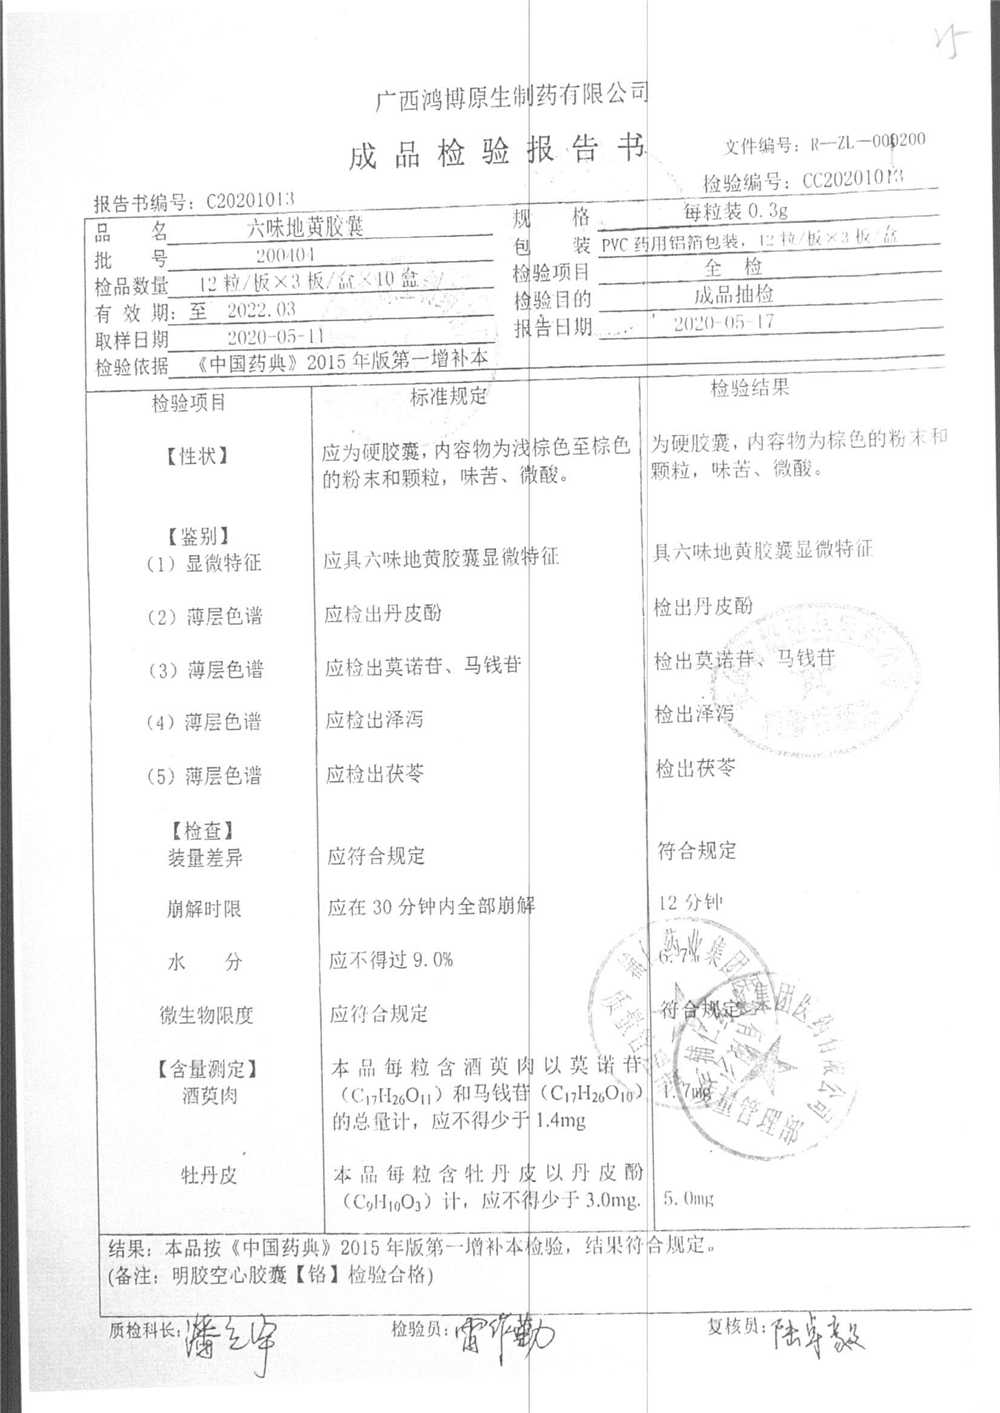 广西鸿博原生制药有限公司
成品检验报告书
文件编号：R—ZL—000200
报告书编号：C20201013
检验编号：CC20201013
品 名 六味地黄胶囊 规 格 每粒装0.3g
批 号 200404 包 装 PVC药用铝箔包装，12粒/板×3板/盒
检品数量 12粒/板×3板/盒×10盒 检验项目 全 检
有 效 期：至 2022.03 检验目的 成品抽检
取样日期 2020-05-11 报告日期 2020-05-17
检验依据 《中国药典》2015年版第一增补本
检验项目 标准规定 检验结果
【性状】 应为硬胶囊，内容物为浅棕色至棕色 为硬胶囊，内容物为棕色的粉末和
的粉末和颗粒，味苦、微酸。 颗粒，味苦、微酸。
【鉴别】
（1）显微特征 应具六味地黄胶囊显微特征 具六味地黄胶囊显微特征
（2）薄层色谱 应检出丹皮酚 检出丹皮酚
（3）薄层色谱 应检出莫诺苷、马钱苷 检出莫诺苷、马钱苷
（4）薄层色谱 应检出泽泻 检出泽泻
（5）薄层色谱 应检出茯苓 检出茯苓
【检查】
装量差异 应符合规定 符合规定
崩解时限 应在30分钟内全部崩解 12分钟
水 分 应不得过9.0%
微生物限度 应符合规定 符合规定
【含量测定】 本品每粒含酒萸肉以莫诺苷
酒萸肉 （C₁₇H₂₆O₁₁）和马钱苷（C₁₇H₂₆O₁₀） 1.7mg
的总量计，应不得少于1.4mg
牡丹皮 本品每粒含牡丹皮以丹皮酚
（C₉H₁₀O₃）计，应不得少于3.0mg. 5.0mg
结果：本品按《中国药典》2015年版第一增补本检验，结果符合规定。
(备注：明胶空心胶囊【铬】检验合格)
质检科长： 检验员： 复核员：陆卓毅